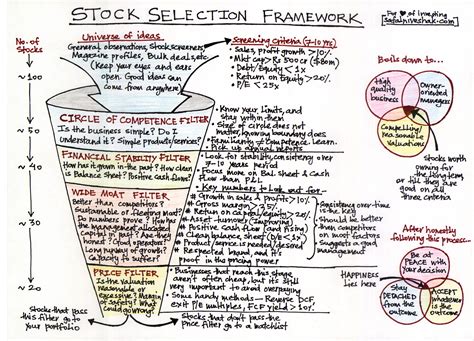 STOCK SELECTION FRAMEWORK
For ♥ of Investing
safalniveshak.com
No. of
Stocks
~ 100
~ 50
~ 40
~ 30
~ 20
Universe of ideas
General observations, Stock screeners,
Magazine profiles, Bulk deals, etc
(Keep your eyes and ears
open. Good ideas can
come from anywhere)
Screening Criteria (7-10 yrs)
• Sales, profit growth > 10%
• Mkt Cap > Rs 500 Cr ($80m)
• Debt/Equity < 1x
• Return on Equity > 20%
• P/E < 25x
CIRCLE OF COMPETENCE FILTER
Is the business simple? Do I
understand it? Simple products/services?
• Know your limits, and
stay within them
• Size of circle does not
matter, knowing boundary does
• Familiarity ≠ Competence. Learn.
• Pick up annual reports
FINANCIAL STABILITY FILTER
How has it grown in the past? How clean
is Balance Sheet? Positive Cash flows?
• Look for stability, consistency over
7-10 years period
• Focus more on Bal Sheet & Cash
flow than P&L
WIDE MOAT FILTER
Better than competitors?
Sustainable or fleeting moat?
Do numbers prove? How has
the management allocated
capital in past? Are they
honest? Good operators?
Long runway of growth?
Capacity to suffer?
Key numbers to look out for
# Growth in sales & profits > 10%
# Gross margin > 35%
# Return on capital/equity > 20%
# Asset turnover (improving)
# Positive Cash flow (and rising)
# Clean balance sheet (D/E < 1x)
# Product/service is needed/desired
# Respected brand, and it's
proof in the pricing power
Consistency over-time
is the key.
Should be better
than competitors
on most factors
Suggests a good
management
PRICE FILTER
Is the valuation
reasonable or
excessive? Margin
of safety? What
could go wrong?
• Businesses that reach this stage
aren't often cheap, but its still
very important to avoid overpaying
• Some handy methods - Reverse DCF,
exit P/E multiples, FCF yield > 10%
Stocks that
pass this filter go to
your portfolio
Stocks that don't pass the
price filter go to a watchlist
Boils down to...
High
quality
business
Owner-
oriented
managers
Compelling/
Reasonable
valuations
Stocks worth
owning for
the long term
or till they
are good on
all three
criteria
After honestly
following this process...
Be at
PEACE with
your decision
Happiness
lies here
Stay
DETACHED
from the
outcome
ACCEPT
whatever
is the
outcome